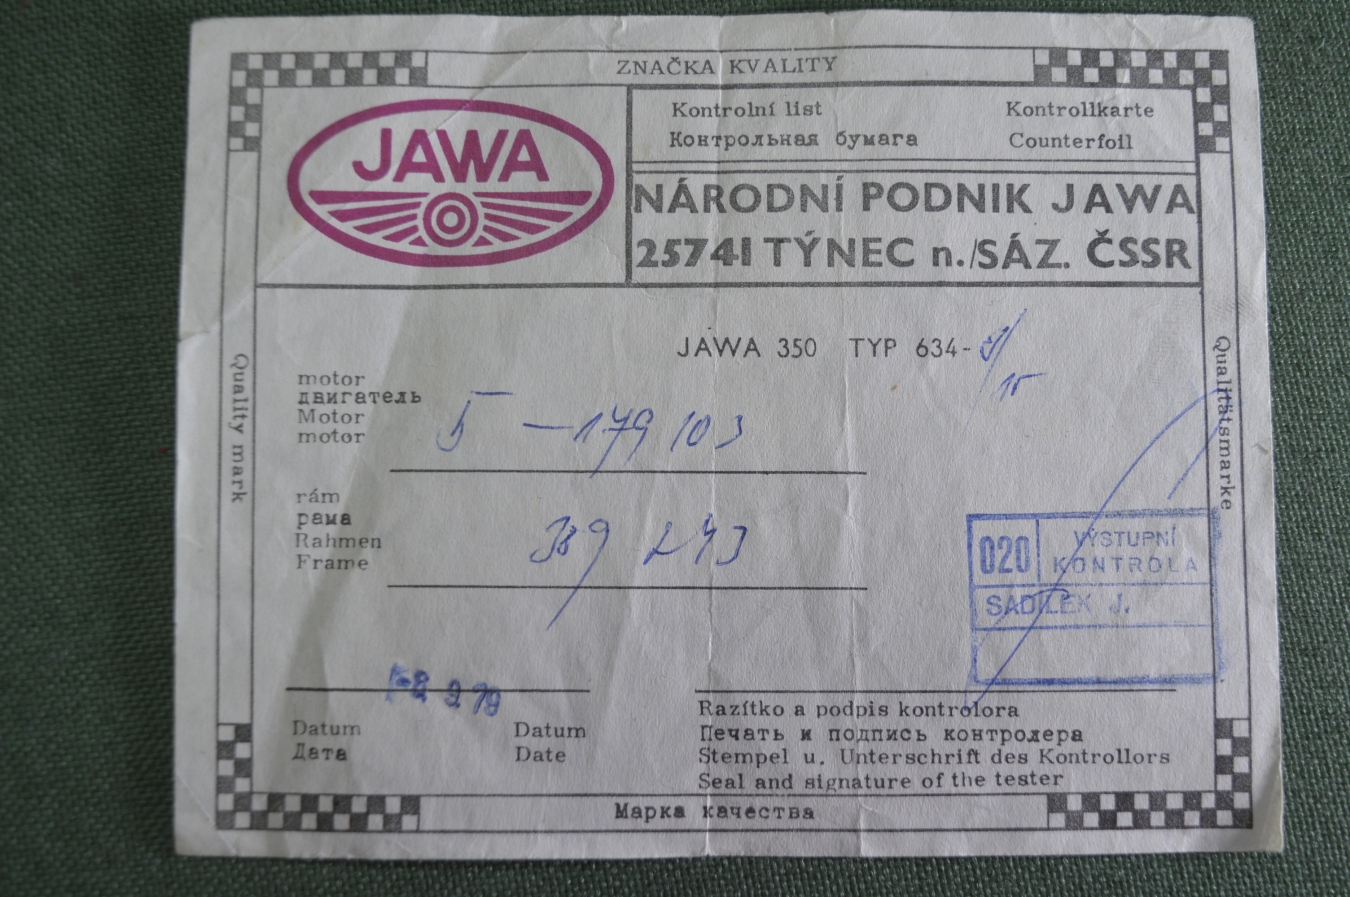 ZNAČKA KVALITY
JAWA
Kontrolní list Kontrollkarte
Контрольная бумага Counterfoil
NÁRODNÍ PODNIK JAWA
25741 TÝNEC n./SÁZ. ČSSR
JAWA 350 TYP 634-
motor
двигатель
Motor
motor
5 - 179 103
rám
рама
Rahmen
Frame
389 243
Quality mark
Qualitätsmarke
020 VÝSTUPNÍ
KONTROLA
SADÍLEK J.
9 79
Datum Datum
Дата Date
Razítko a podpis kontrolora
Печать и подпись контролера
Stempel u. Unterschrift des Kontrollors
Seal and signature of the tester
Марка качества